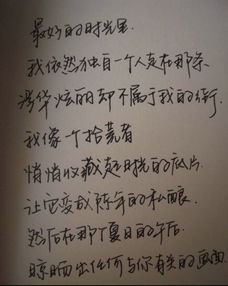 最好的时光里
我依然独自一个人走在那条
浮华炫丽却不属于我的街
我像一个拾荒者
悄悄收藏起时光的底片
让它变成陈年的私酿
然后在那个夏日的午后
晾晒出任何与你有关的画面